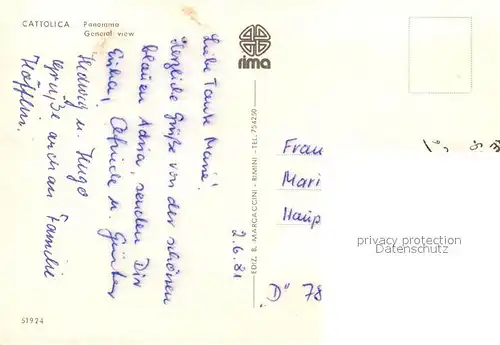 CATTOLICA Panorama
General view
rima
2.6.81
Liebe Tante Marie!
Herzliche Grüße von der schönen
blauen Adria, senden Dir
Erika, Elfriede u. Günther
Hedwig u. Hugo
Grüße auch an Familie
EDIZ. B. MARCACCINI - RIMINI - TEL. 754250
Frau
Mari
Haup
"D" 78
privacy protection
Datenschutz
51924